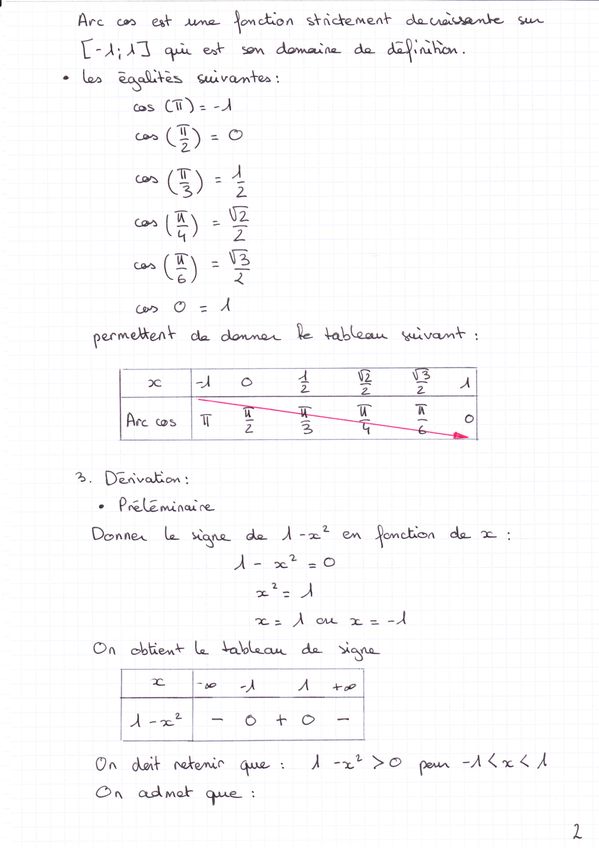 Arc cos est une fonction strictement decroissante sur
[-1;1] qui est son domaine de définition.
• les égalités suivantes:
cos (π) = -1
cos (π/2) = 0
cos (π/3) = 1/2
cos (π/4) = √2/2
cos (π/6) = √3/2
cos 0 = 1
permettent de donner le tableau suivant :
x -1 0 1/2 √2/2 √3/2 1
Arc cos π π/2 π/3 π/4 π/6 0
3. Dérivation:
• Préléminaire
Donner le signe de 1-x² en fonction de x :
1 - x² = 0
x² = 1
x = 1 ou x = -1
On obtient le tableau de signe
x -∞ -1 1 +∞
1-x² - 0 + 0 -
On doit retenir que : 1 -x² > 0 pour -1 < x < 1
On admet que :
2